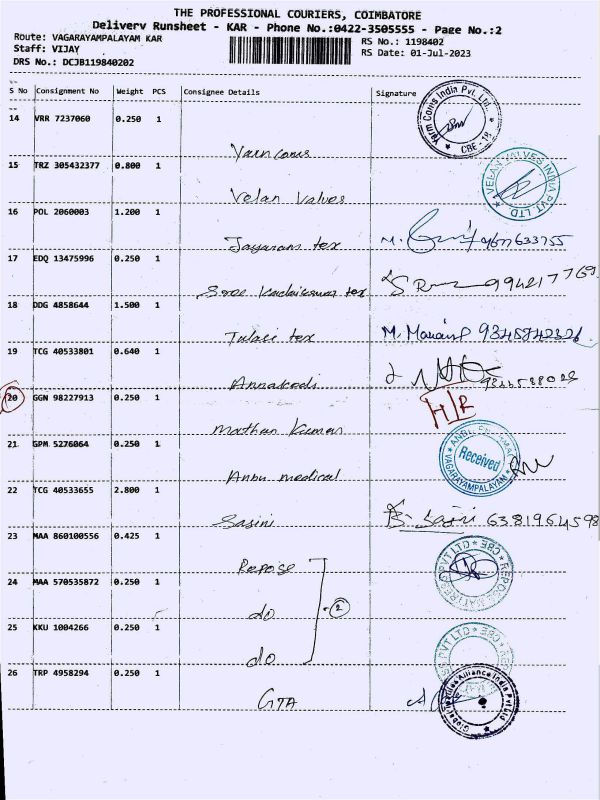 THE PROFESSIONAL COURIERS, COIMBATORE
Delivery Runsheet - KAR - Phone No.:0422-3505555 - Page No.:2
Route: VAGARAYAMPALAYAM KAR
RS No.: 1198402
Staff: VIJAY
RS Date: 01-Jul-2023
DRS No.: DCJB119840202
S No Consignment No Weight PCS Consignee Details Signature
14 VRR 7237060 0.250 1
Yarn Coms India Pvt. Ltd. CBE - 18
Yarn coms
15 TRZ 305432377 0.800 1
VELAN VALVES INDIA PVT. LTD
Velan Valves
16 POL 2060003 1.200 1
Jayaram tex M.
17 EDQ 13475996 0.250 1
tex
18 DDG 4858644 1.500 1
Tulasi tex M. 9345842326
19 TCG 40533801 0.640 1
20 GGN 98227913 0.250 1
H/R
Mathan Kumar
21 GPM 5276064 0.250 1
Received
VAGARAYAMPALAYAM
Anbu medical
22 TCG 40533655 2.800 1
Sasini 6381964598
23 MAA 860100556 0.425 1
Repose
24 MAA 570535872 0.250 1
2
do
25 KKU 1004266 0.250 1
PVT LTD CBE
do
26 TRP 4958294 0.250 1
Global Textiles Alliance India Pvt Ltd
GTA